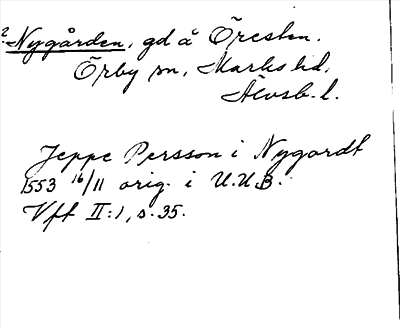 2. Nygården, gd å Öresten.
Örby sn, Marks hd.
Älvsb. l.
Jeppe Persson i Nygordt
1553 16/11 orig. i U.U.B.
Vft II:1, s. 35.